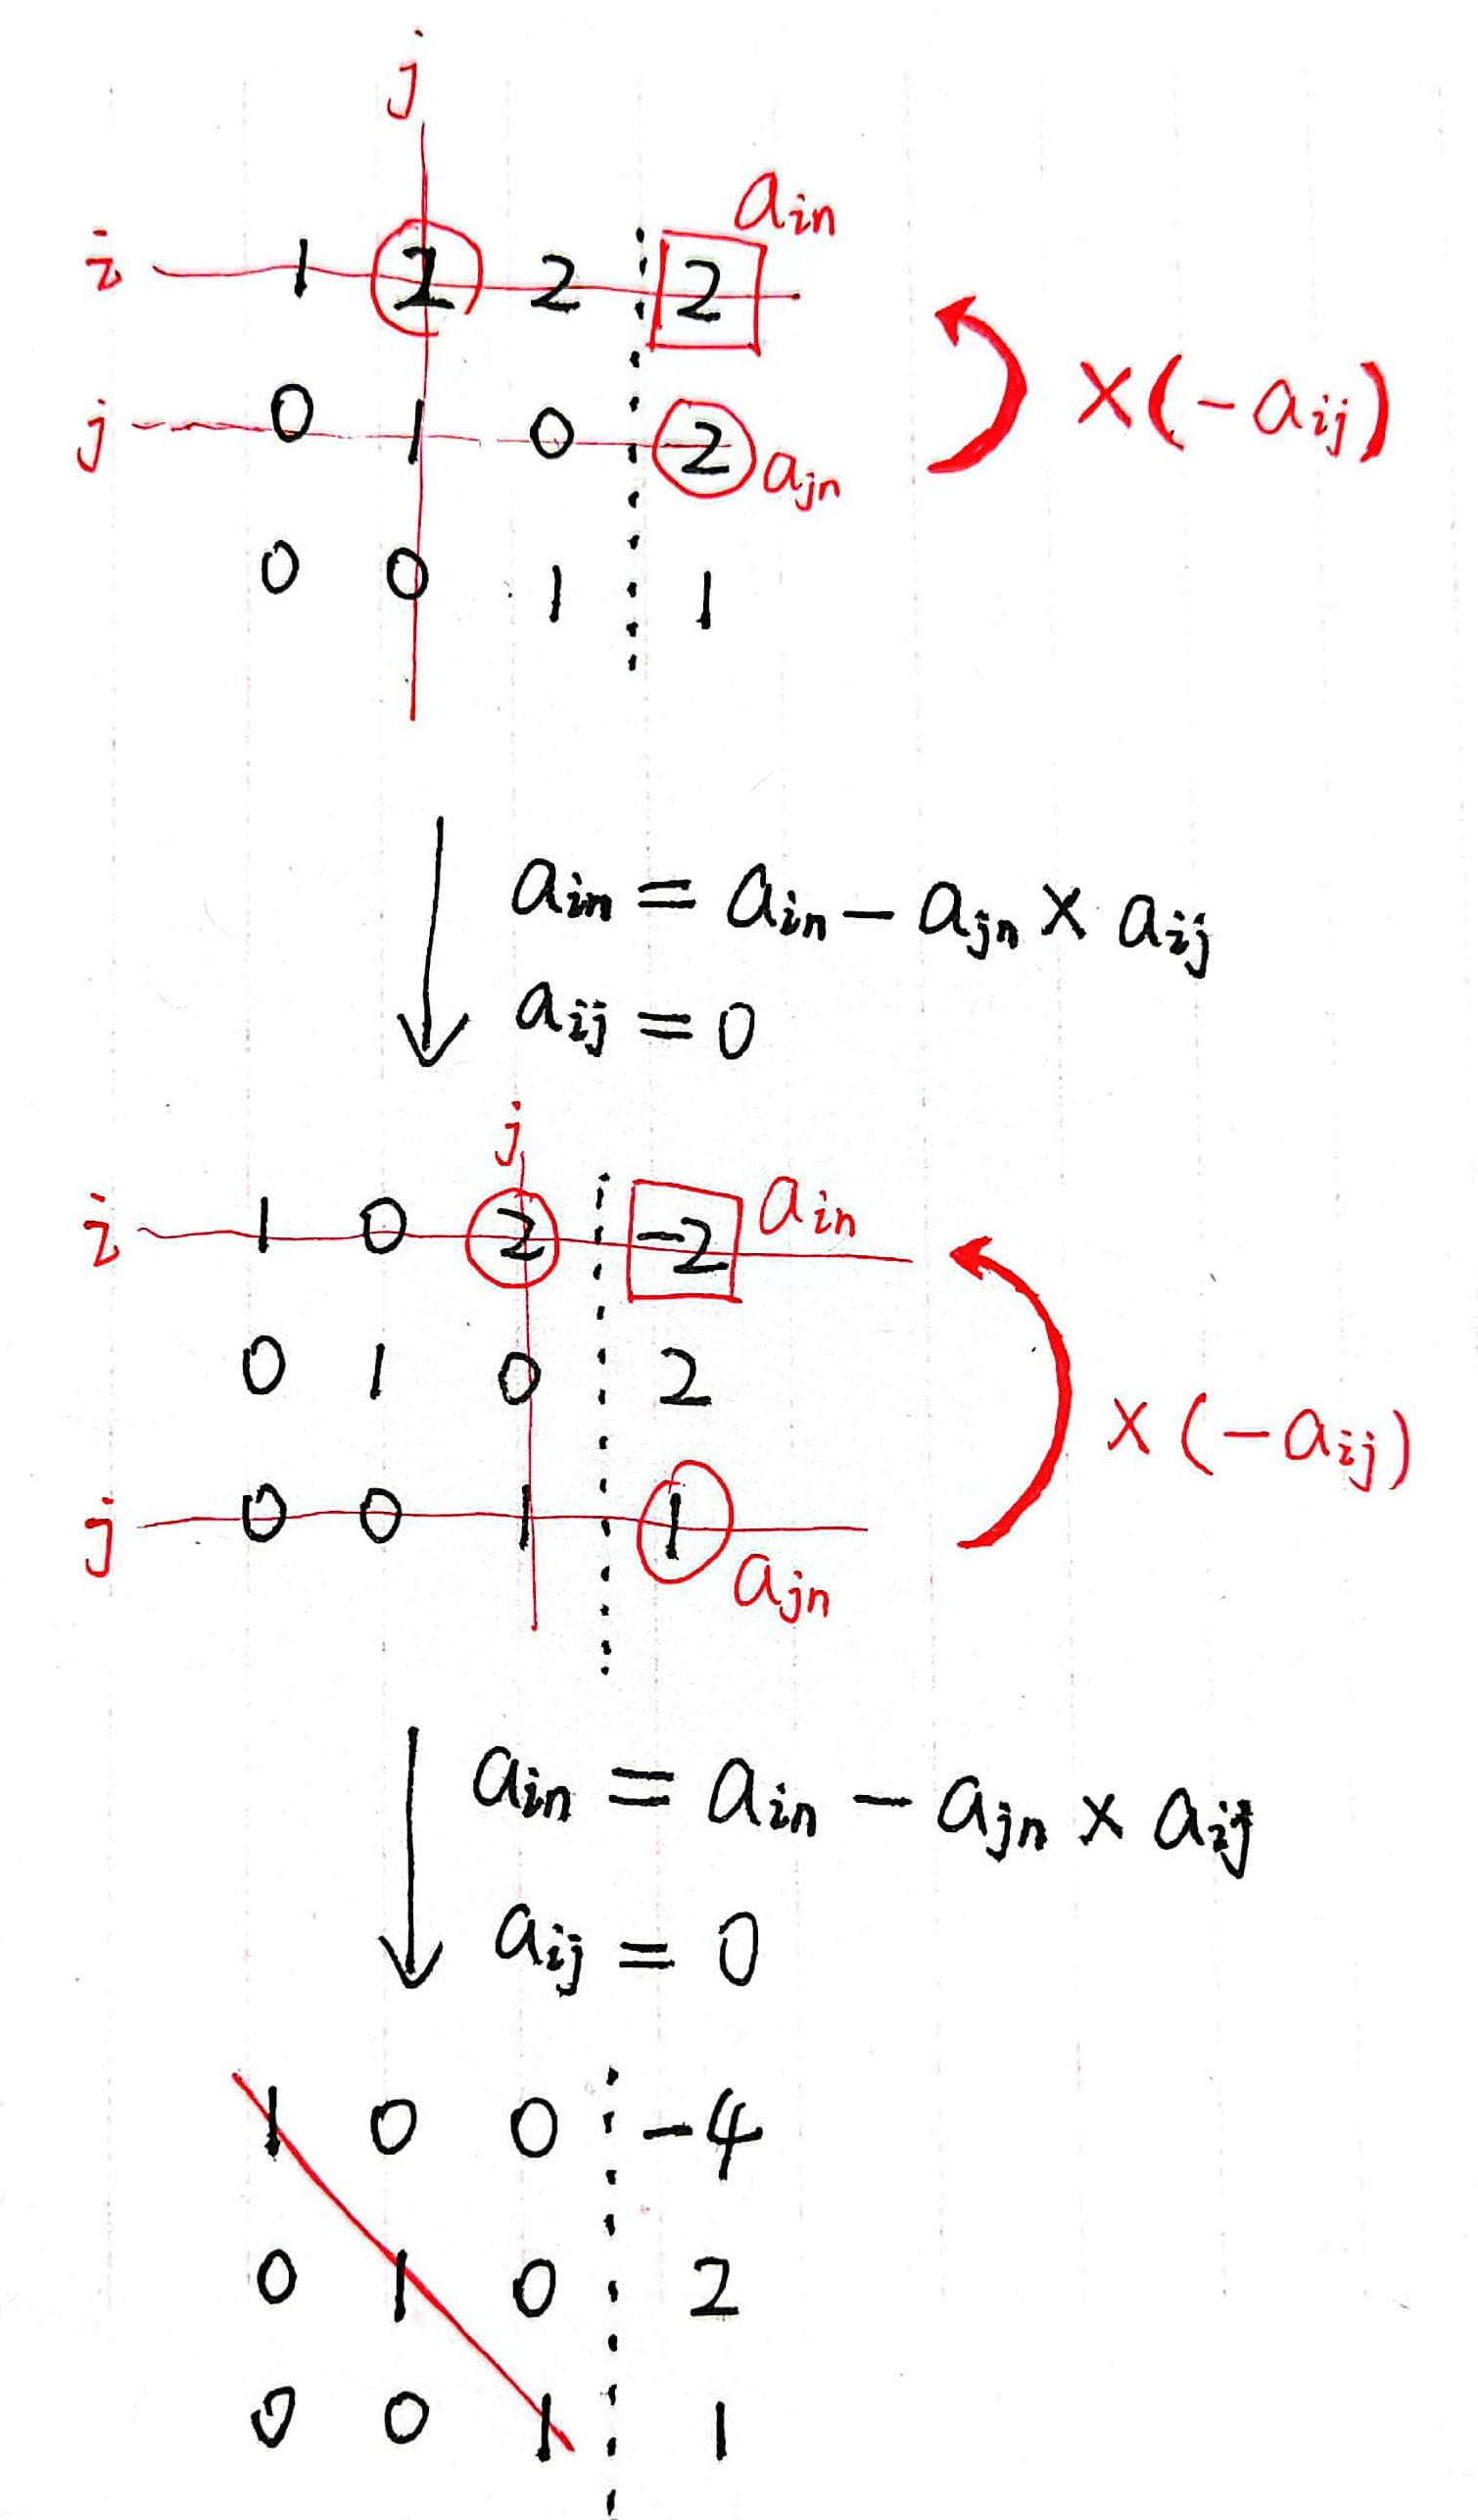 j
a_in
i 1 2 2 ⋮ 2
×(-a_ij)
j 0 1 0 ⋮ 2 a_jn
0 0 1 ⋮ 1
a_in = a_in - a_jn × a_ij
a_ij = 0
j
i 1 0 2 ⋮ -2 a_in
0 1 0 ⋮ 2
×(-a_ij)
j 0 0 1 ⋮ 1
a_jn
a_in = a_in - a_jn × a_ij
a_ij = 0
1 0 0 ⋮ -4
0 1 0 ⋮ 2
0 0 1 ⋮ 1